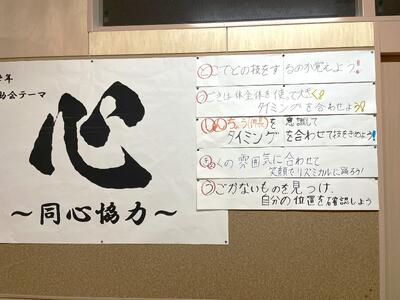 年
動会テーマ
心
～同心協力～
どこでどの技をするのか覚えよう!
うごきは体全体を使って大きく
タイミングを合わせよう!
を意識して
タイミングを合わせて技をきめよう!
きょくの雰囲気に合わせて
笑顔でリズミカルに踊ろう!
うごかないものを見つけ、
自分の位置を確認しよう